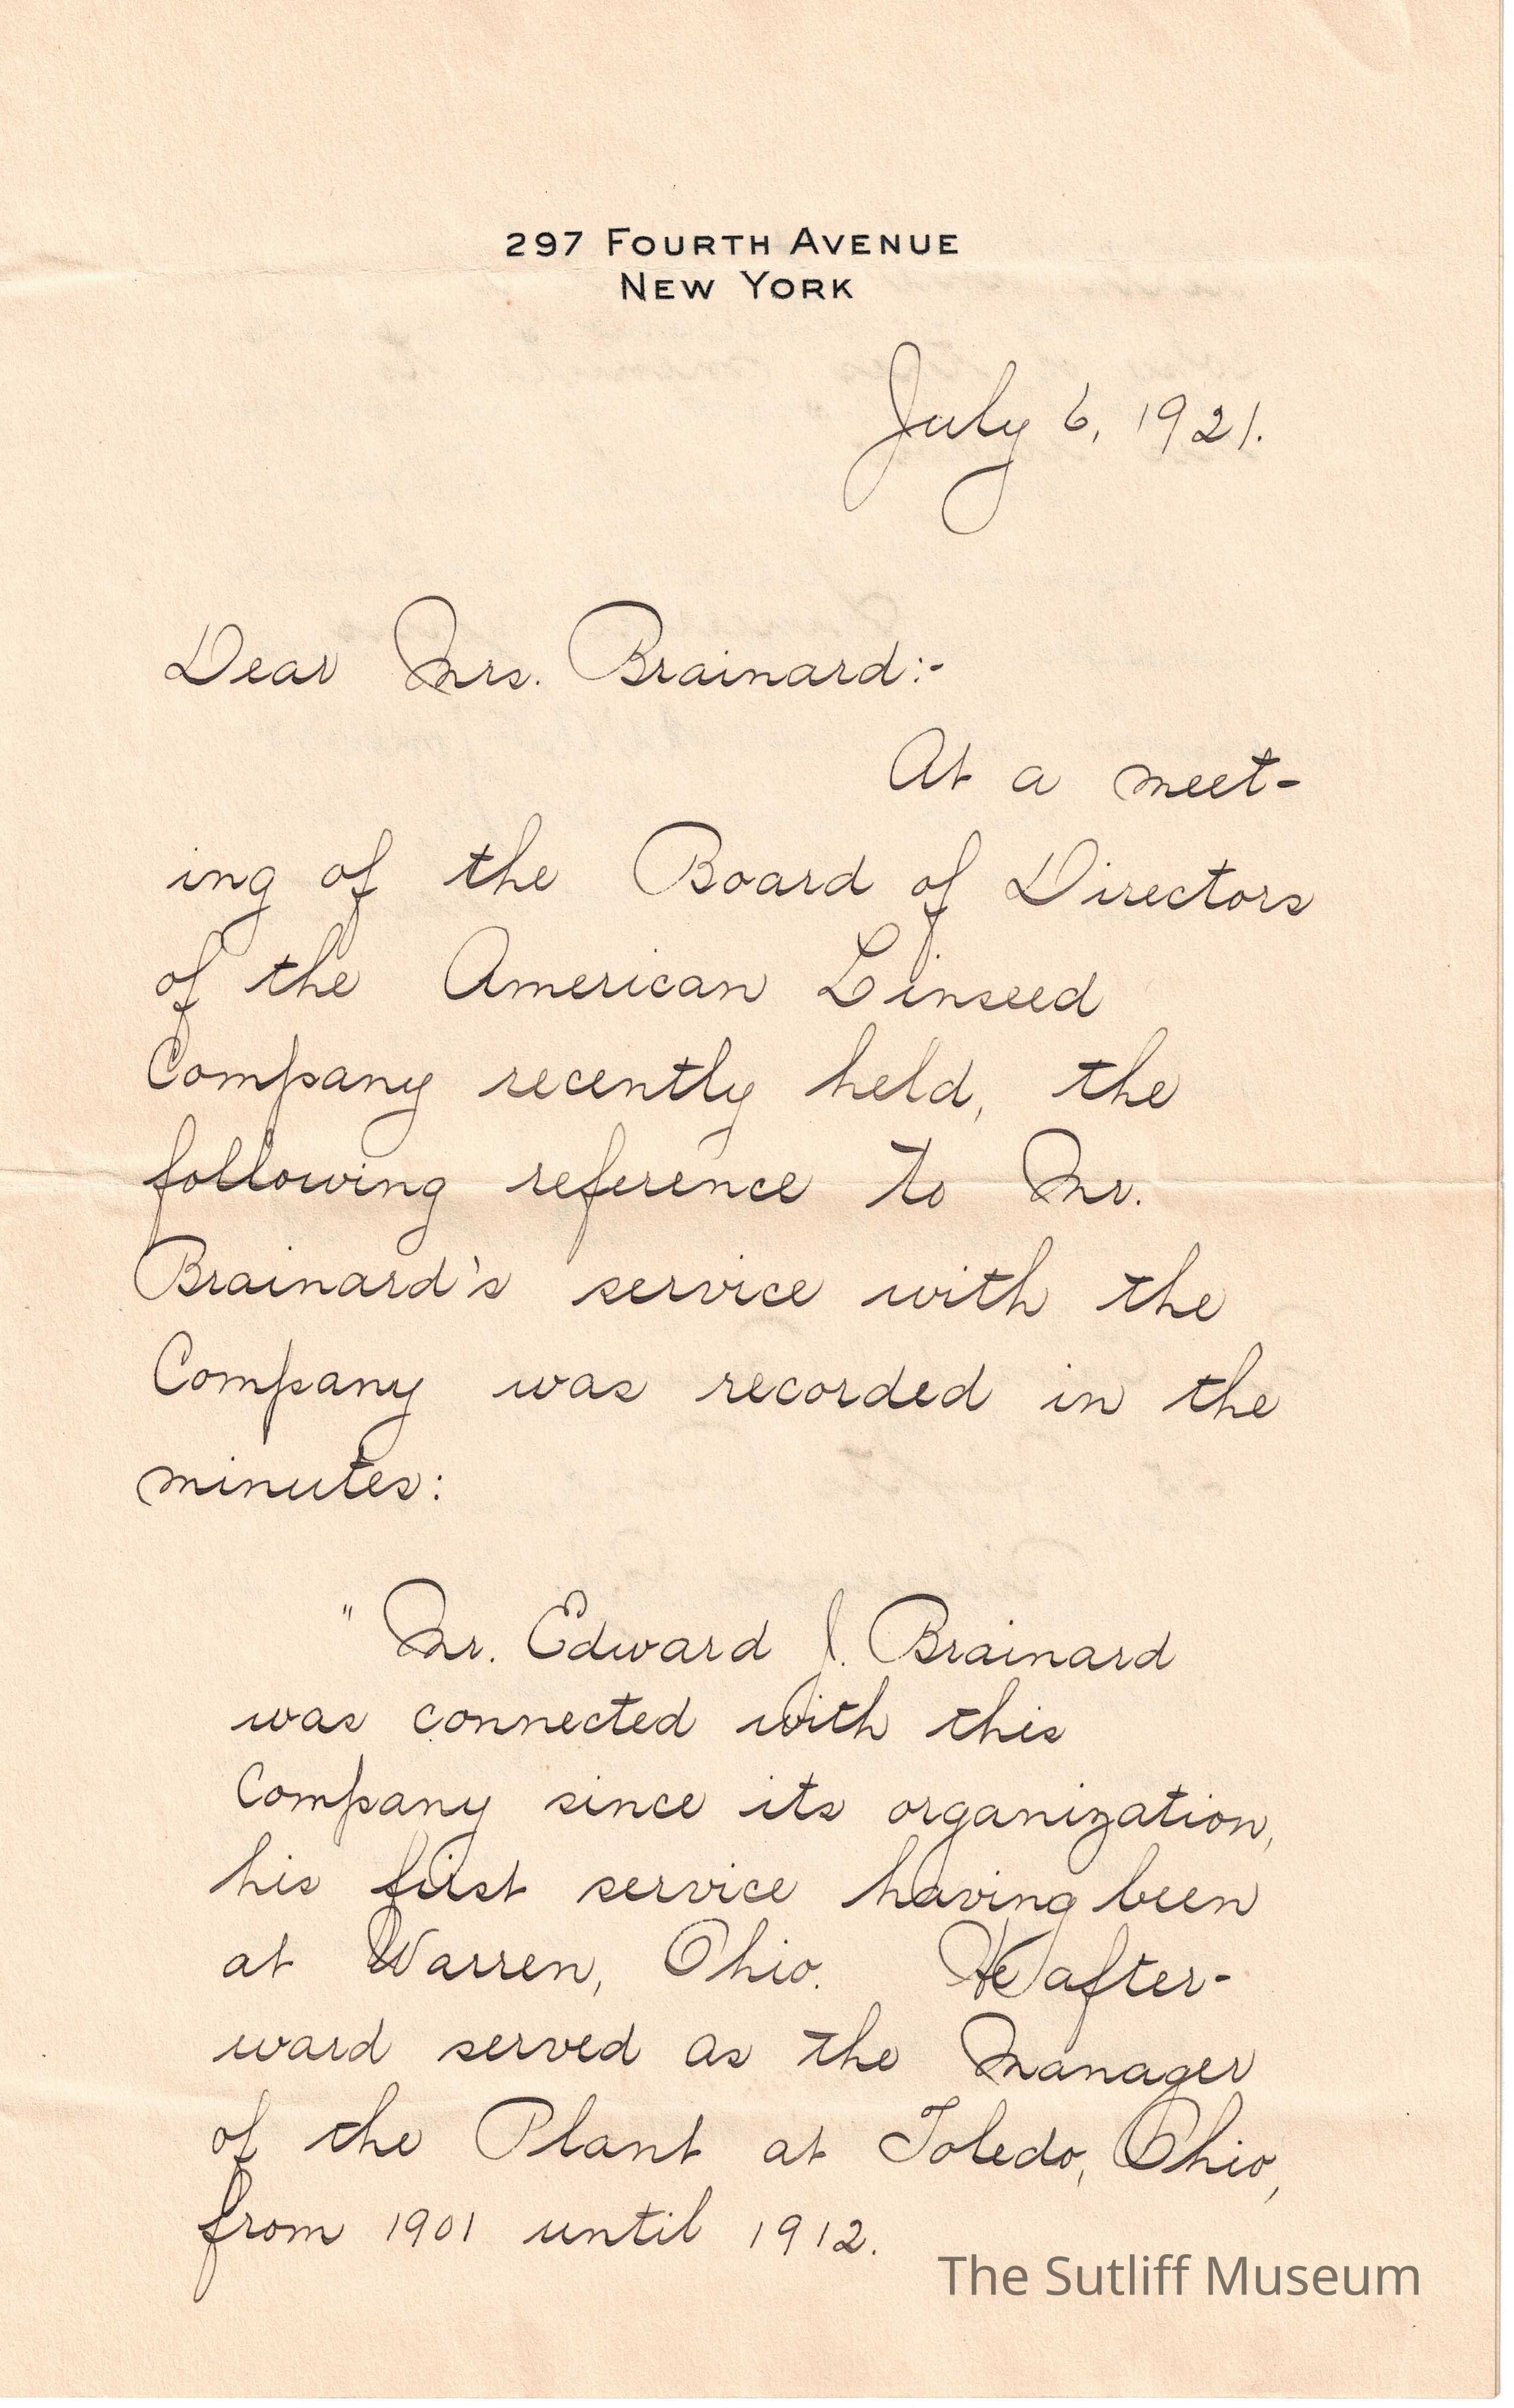 297 FOURTH AVENUE
NEW YORK
July 6, 1921.
Dear Mrs. Brainard:-
At a meet-
ing of the Board of Directors
of the American Linseed
Company recently held, the
following reference to Mr.
Brainard's service with the
Company was recorded in the
minutes:
" Mr. Edward J. Brainard
was connected with this
Company since its organization,
his first service having been
at Warren, Ohio. He after-
ward served as the Manager
of the Plant at Toledo, Ohio,
from 1901 until 1912.
The Sutliff Museum